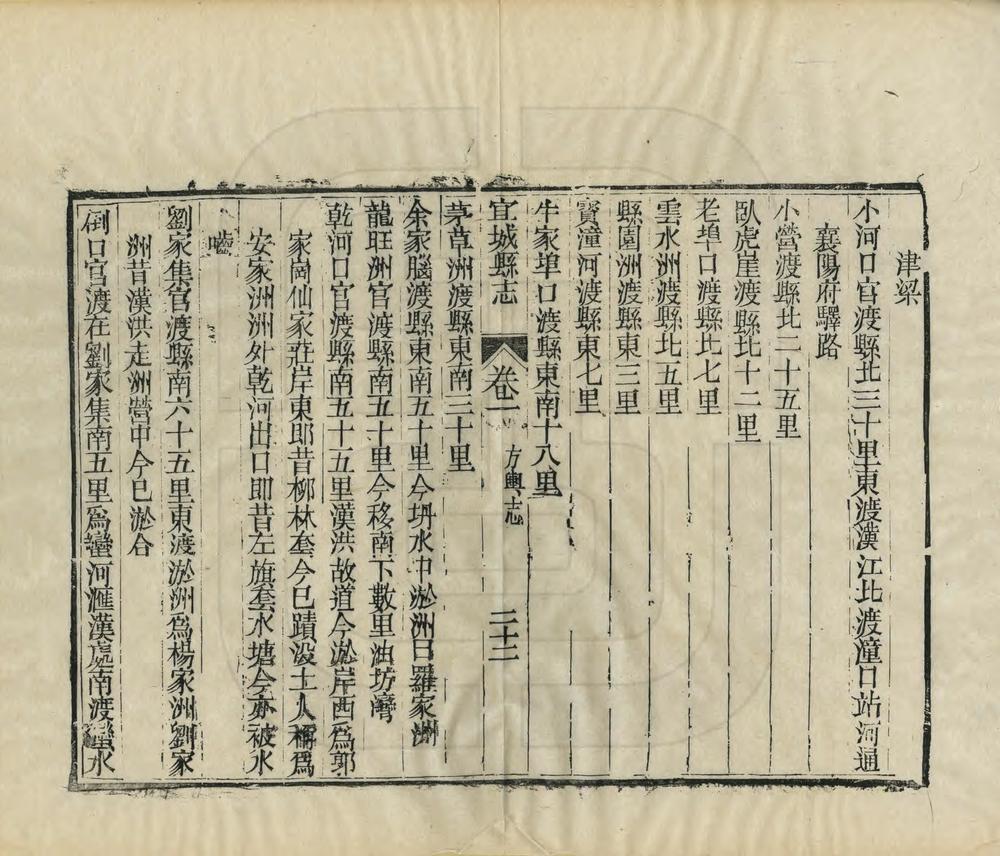 津梁
小河口官渡縣北三十里東渡漢江北渡潼口站河通
襄陽府驛路
小營渡縣北二十五里
臥虎崖渡縣北十二里
老埠口渡縣北七里
雲水洲渡縣北五里
縣園洲渡縣東三里
寳潼河渡縣東七里
牛家埠口渡縣東南十八里
宜城縣志 卷一 方輿志 二十二
茅草洲渡縣東南三十里
余家腦渡縣東南五十里今坍水中淤洲曰羅家洲
龍旺洲官渡縣南五十里今移南下數里油坊灣
乾河口官渡縣南五十五里漢洪故道今淤岸西爲郭
家崗仙家莊岸東即昔柳林套今已蹟沒土人稱爲
安家洲洲外乾河出口即昔左旗套水塘今亦被水
嚙
劉家集官渡縣南六十五里東渡淤洲爲楊家洲劉家
洲昔漢洪走洲營中今已淤合
倒口官渡在劉家集南五里爲蠻河滙漢處南渡蠻水